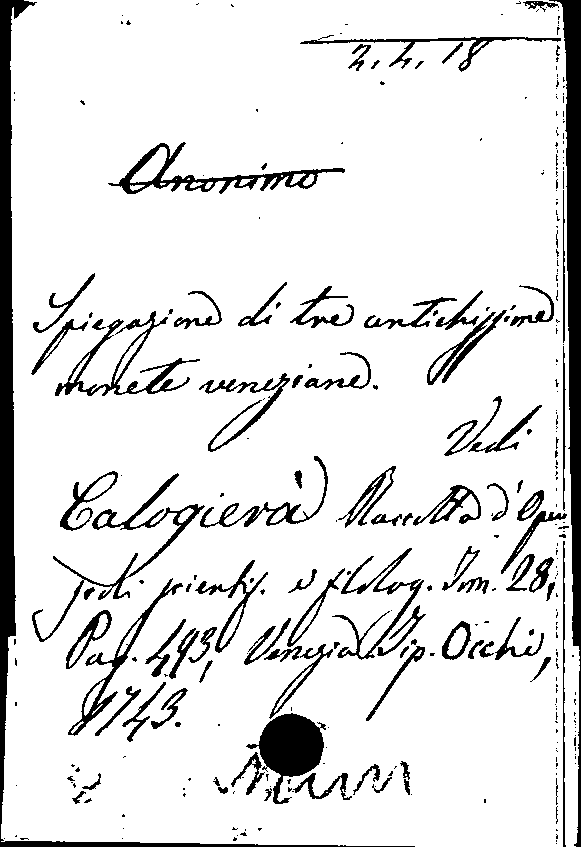 2.4.18
Anonimo
Spiegazione di tre antichissime
monete veneziane.
Vedi
Calogierà Raccolta d'Opu
scoli scientif. e filolog. Tom. 28,
Pag. 493, Venezia Tip. Occhi,
1743.